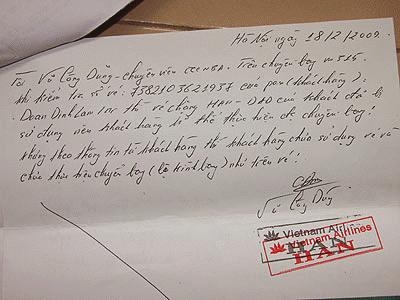 Hà Nội ngày 18/2/2009.
Tôi Vũ Công Dũng - chuyên viên Trên chuyến bay
khi kiểm tra số vé: 7382103621937 của pax (khách hàng):
Doan Dinh Lam Mr thì vé chặng HAN - của khách đã bị
sử dụng nên khách hàng bị thể thực hiện chuyến bay!
Nhưng theo thông tin từ khách hàng thì khách hàng chưa sử dụng vé và
chưa thực hiện chuyến bay (lộ trình bay) như trên vé!
Vũ Công Dũng
Vietnam Airlines
Vietnam Airlines
HAN
HAN